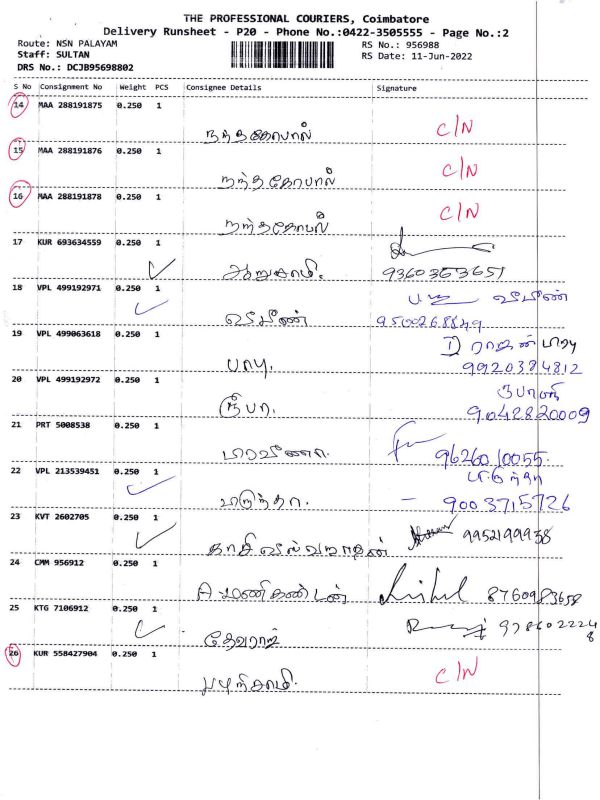 THE PROFESSIONAL COURIERS, Coimbatore
Delivery Runsheet - P20 - Phone No.:0422-3505555 - Page No.:2
Route: NSN PALAYAM RS No.: 956988
Staff: SULTAN RS Date: 11-Jun-2022
DRS No.: DCJB95698802
S No Consignment No Weight PCS Consignee Details Signature
14 MAA 288191875 0.250 1
நந்தகோபால் C/N
15 MAA 288191876 0.250 1
நந்தகோபால் C/N
16 MAA 288191878 0.250 1
நந்தகோபால் C/N
17 KUR 693634559 0.250 1
ஆறுசாமி. 9360363651
18 VPL 499192971 0.250 1
விபீண் விபீண்
9500268849
19 VPL 499063618 0.250 1
பாபு. ராஜன் பாபு
9920384812
20 VPL 499192972 0.250 1
ரூபா. 9042820009
21 PRT 5008538 0.250 1
9626010055
22 VPL 213539451 0.250 1
9003715726
23 KVT 2602705 0.250 1
காசிவிஸ்வநாதன் 9952199938
24 CMM 956912 0.250 1
A. மணிகண்டன் 8760983658
25 KTG 7106912 0.250 1
தேவராஜ் 9786022248
26 KUR 558427904 0.250 1
பழனிசாமி. C/N